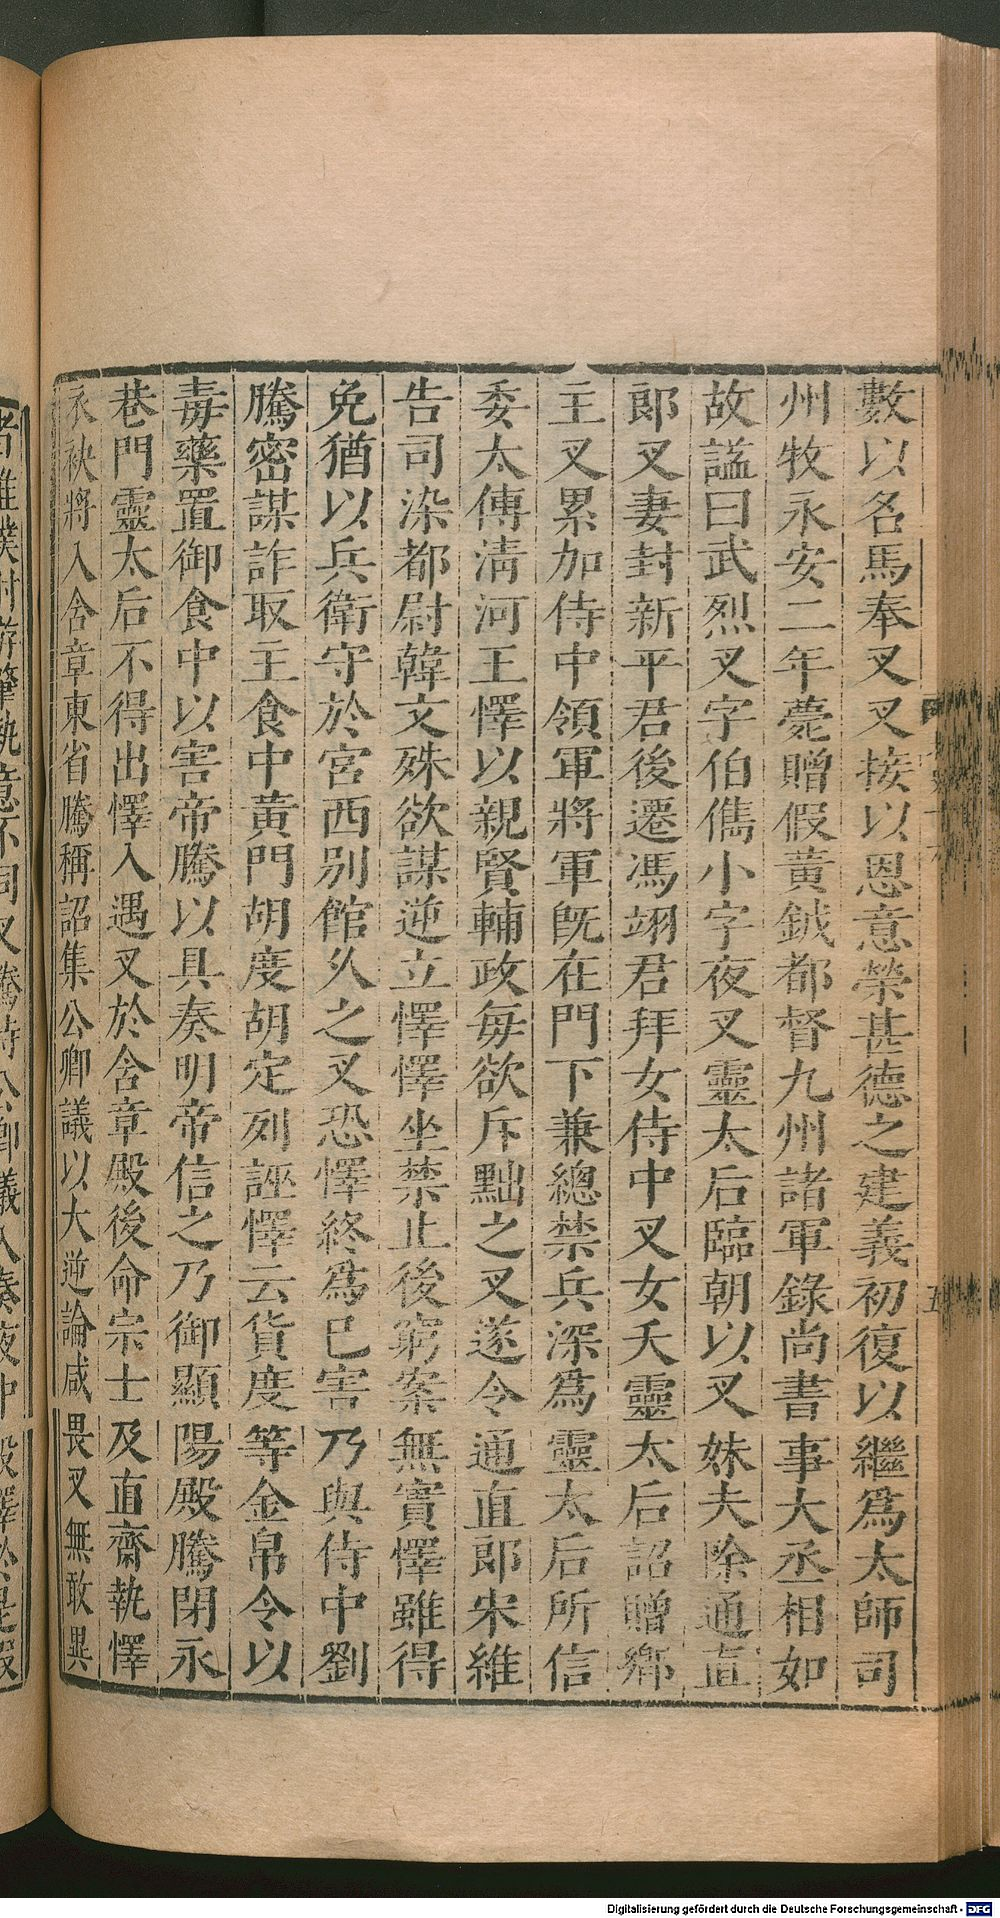 數以名馬奉叉叉接以恩意榮甚德之建義初復以繼爲太師司
州牧永安二年薨贈假黃鉞都督九州諸軍錄尚書事大丞相如
故謚曰武烈叉字伯儁小字夜叉靈太后臨朝以叉妹夫除通直
郎叉妻封新平君後遷馮翊君拜女侍中叉女夭靈太后詔贈鄉
主叉累加侍中領軍將軍旣在門下兼總禁兵深爲靈太后所信
委太傅淸河王懌以親賢輔政每欲斥黜之叉遂令通直郎宋維
告司染都尉韓文殊欲謀逆立懌懌坐禁止後窮案無實懌雖得
免猶以兵衛守於宮西别館久之叉恐懌終爲已害乃與侍中劉
騰密謀詐取主食中黃門胡度胡定列誣懌云貨度等金帛令以
毒藥置御食中以害帝騰以具奏明帝信之乃御顯陽殿騰閉永
巷門靈太后不得出懌入遇叉於含章殿後命宗士及直齋執懌
衣袂將入含章東省騰稱詔集公卿議以大逆論咸畏叉無敢異
五
Digitalisierung gefördert durch die Deutsche Forschungsgemeinschaft - DFG